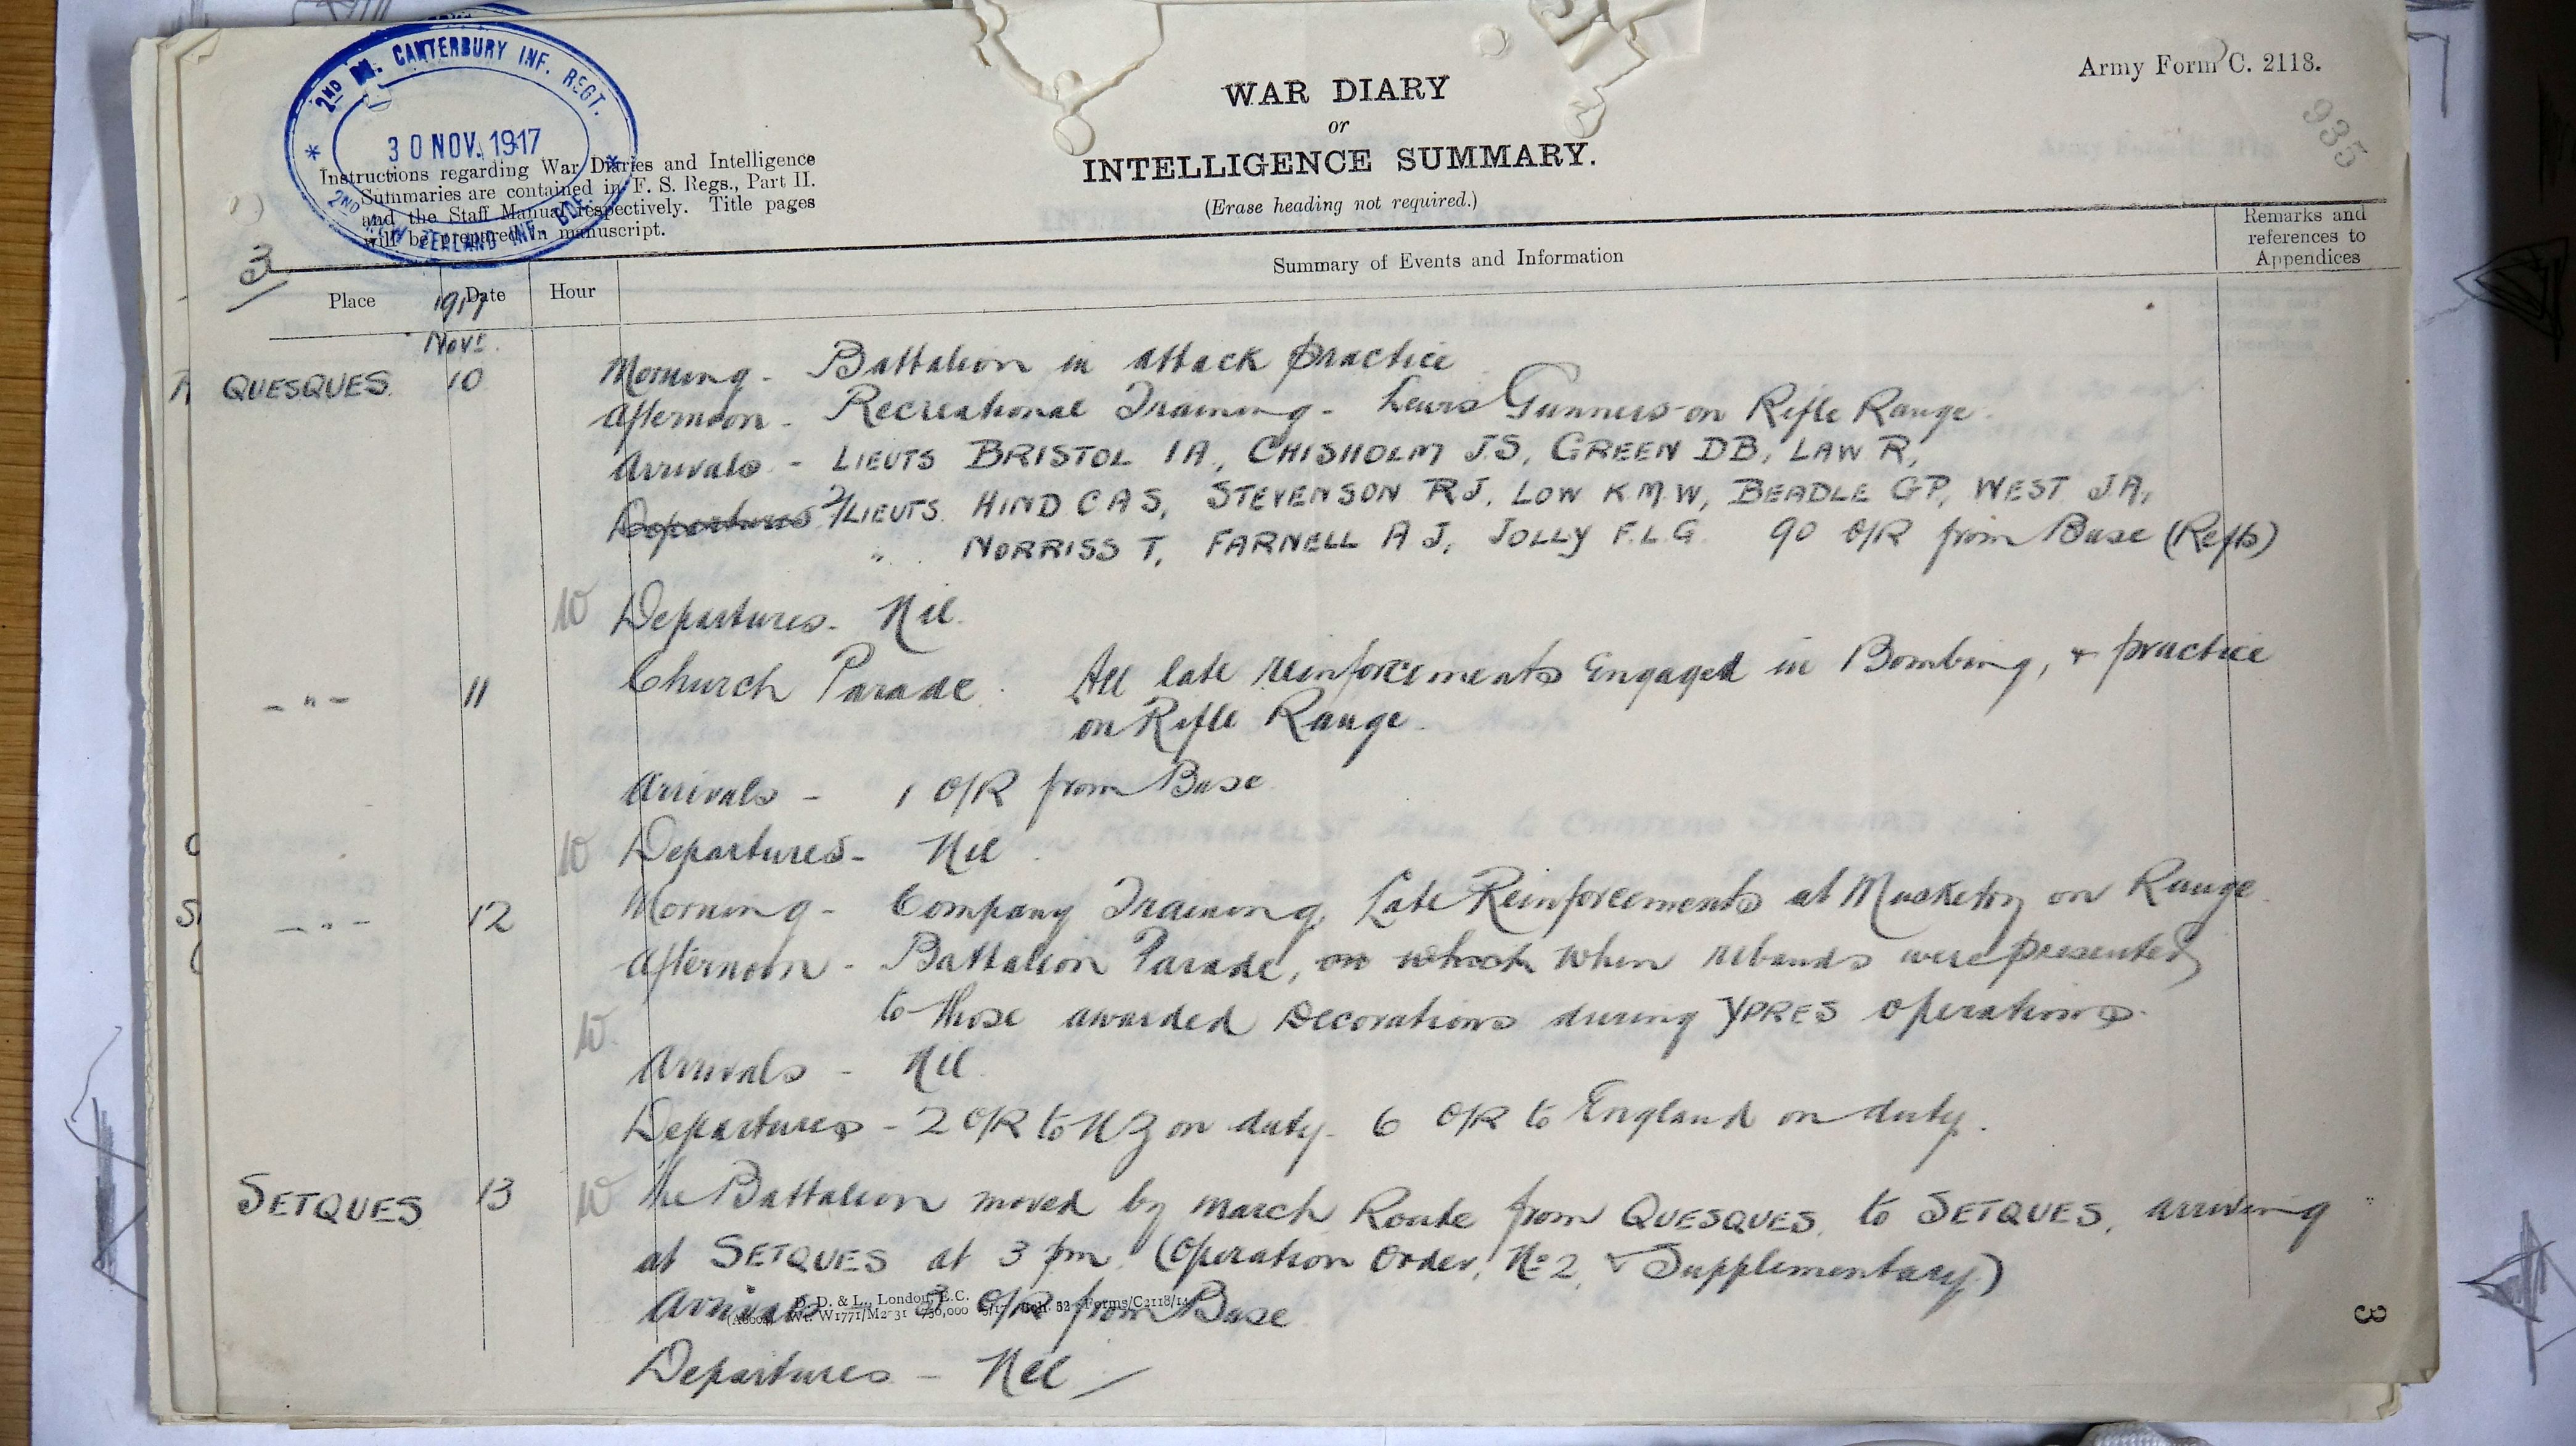 2ND BN. CANTERBURY INF. REGT.
30 NOV. 1917
2ND NEW ZEALAND INF. BDE.
Army Form C. 2118.
935
WAR DIARY
or
INTELLIGENCE SUMMARY.
(Erase heading not required.)
Instructions regarding War Diaries and Intelligence
Summaries are contained in F. S. Regs., Part II.
and the Staff Manual respectively. Title pages
will be prepared in manuscript.
3
Place Date Hour Summary of Events and Information Remarks and references to Appendices
1917
Novr.
QUESQUES. 10 Morning - Battalion in attack practice
Afternoon - Recreational Training - Lewis Gunners on Rifle Range.
Arrivals - LIEUTS BRISTOL IA, CHISHOLM J.S, GREEN DB, LAW R,
Departures 2/LIEUTS. HIND C A S, STEVENSON RJ. LOW K M W, BEADLE GP, WEST JA,
" NORRISS T, FARNELL A J, JOLLY F.L.G. 90 O/R from Base (Refts)
Departures - Nil.
- " - 11 Church Parade. All late reinforcements Engaged in Bombing, + practice
on Rifle Range.
Arrivals - 1 O/R from Base
Departures - Nil.
- " - 12 Morning - Company Training, Late Reinforcements at Musketry on Range.
Afternoon - Battalion Parade, on which when ribands were presented
to those awarded Decorations during YPRES operations.
Arrivals - Nil.
Departures - 2 O/R to NZ on duty - 6 O/R to England on duty.
SETQUES 13 The Battalion moved by march Route from QUESQUES. to SETQUES, arriving
at SETQUES at 3 pm. (Operation Order, No 2, + Supplementary)
Arrivals O/R from Base
D. D. & L., London, E.C.
Forms/C2118/14
Departures - Nil
3